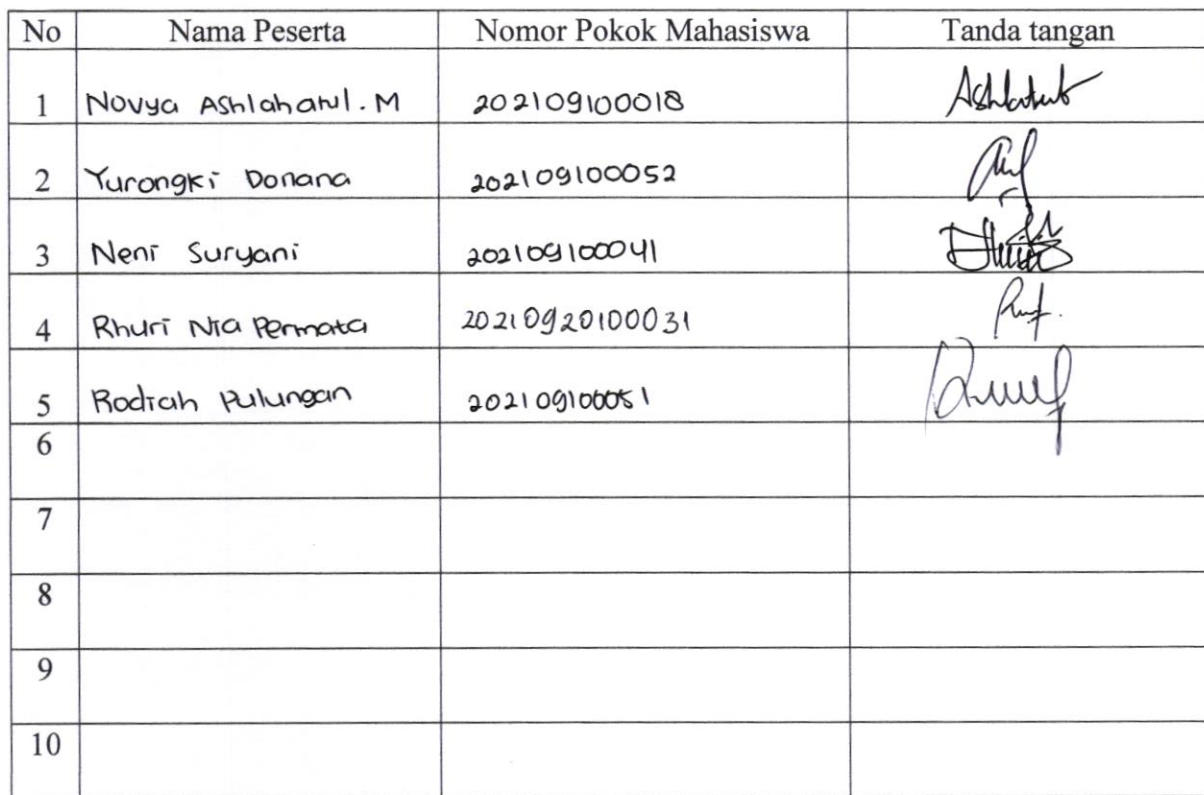 No Nama Peserta Nomor Pokok Mahasiswa Tanda tangan
1 Novya Ashlahatul.M 202109100018
2 Yurongki Donana 202109100052
3 Neni Suryani 202109100041
4 Rhuri Nia Permata 20210920100031
5 Rodiah Pulungan 202109100051
6
7
8
9
10